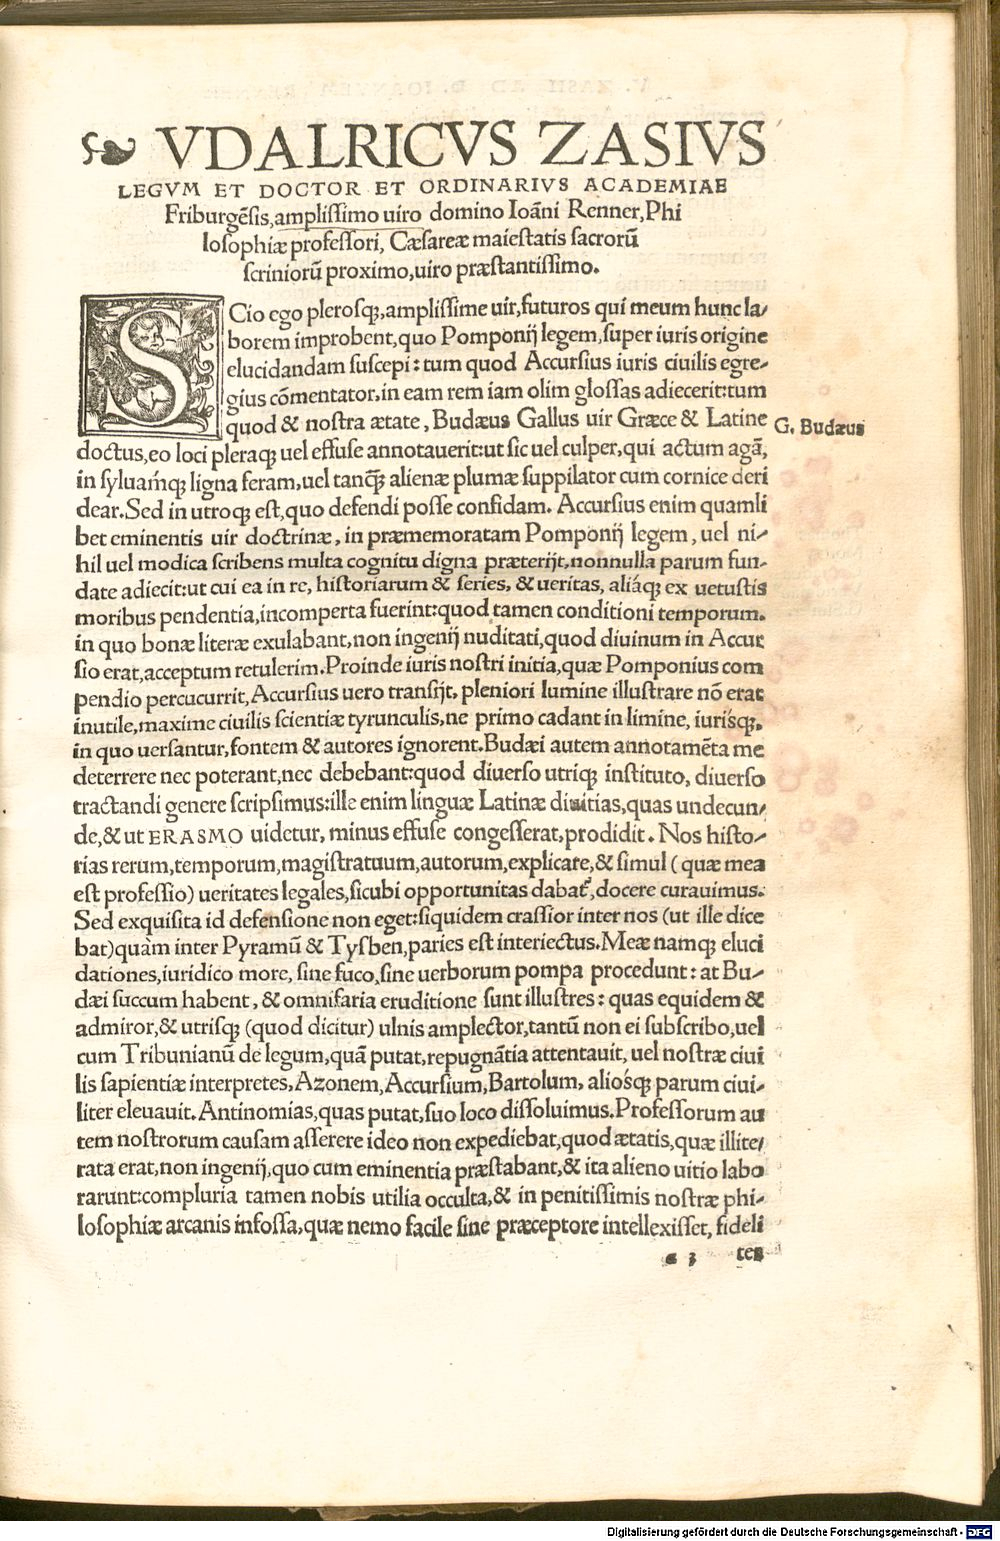 ❧ VDALRICVS ZASIVS
LEGVM ET DOCTOR ET ORDINARIVS ACADEMIAE
Friburgēsis, amplissimo uiro domino Ioāni Renner, Phi
losophiæ professori, Cæsareæ maiestatis sacrorū
scriniorū proximo, uiro præstantissimo.
SCio ego plerosq;, amplissime uir, futuros qui meum hunc la-
borem improbent, quo Pomponij legem, super iuris origine
elucidandam suscepi: tum quod Accursius iuris ciuilis egre-
gius cōmentator, in eam rem iam olim glossas adiecerit: tum
quod & nostra ætate, Budæus Gallus uir Græce & Latine
G. Budæus
doctus, eo loci pleraq; uel effuse annotauerit: ut sic uel culper, qui actum agā,
in syluamq́; ligna feram, uel tanq̄; alienæ plumæ suppilator cum cornice deri
dear. Sed in utroq; est, quo defendi posse confidam. Accursius enim quamli
bet eminentis uir doctrinæ, in præmemoratam Pomponij legem, uel ni-
hil uel modica scribens multa cognitu digna præterijt, nonnulla parum fun-
date adiecit: ut cui ea in re, historiarum & series, & ueritas, aliáq; ex uetustis
moribus pendentia, incomperta fuerint: quod tamen conditioni temporum.
in quo bonæ literæ exulabant, non ingenij nuditati, quod diuinum in Accur
sio erat, acceptum retulerim. Proinde iuris nostri initia, quæ Pomponius com
pendio percucurrit, Accursius uero transijt, pleniori lumine illustrare nō erat
inutile, maxime ciuilis scientiæ tyrunculis, ne primo cadant in limine, iurisq́;,
in quo uersantur, fontem & autores ignorent. Budæi autem annotamēta me
deterrere nec poterant, nec debebant: quod diuerso utriq; instituto, diuerso
tractandi genere scripsimus: ille enim linguæ Latinæ diuitias, quas undecun-
de, & ut ERASMO uidetur, minus effuse congesserat, prodidit. Nos histo-
rias rerum, temporum, magistratuum, autorum, explicare, & simul (quæ mea
est professio) ueritates legales, sicubi opportunitas dabat᷑, docere curauimus.
Sed exquisita id defensione non eget: siquidem crassior inter nos (ut ille dice
bat) quàm inter Pyramū & Tysben, paries est interiectus. Meæ namq; eluci
dationes, iuridico more, sine fuco, sine uerborum pompa procedunt: at Bu-
dæi succum habent, & omnifaria eruditione sunt illustres: quas equidem &
admiror, & utrisq; (quod dicitur) ulnis amplector, tantū non ei subscribo, uel
cum Tribunianū de legum, quā putat, repugnātia attentauit, uel nostræ ciui
lis sapientiæ interpretes, Azonem, Accursium, Bartolum, aliosq́; parum ciui-
liter eleuauit. Antinomias, quas putat, suo loco dissoluimus. Professorum au
tem nostrorum causam asserere ideo non expediebat, quod ætatis, quæ illite-
rata erat, non ingenij, quo cum eminentia præstabant, & ita alieno uitio labo
rarunt: compluria tamen nobis utilia occulta, & in penitissimis nostræ phi-
losophiæ arcanis infossa, quæ nemo facile sine præceptore intellexisset, fideli
a 3 ter
Digitalisierung gefördert durch die Deutsche Forschungsgemeinschaft - DFG